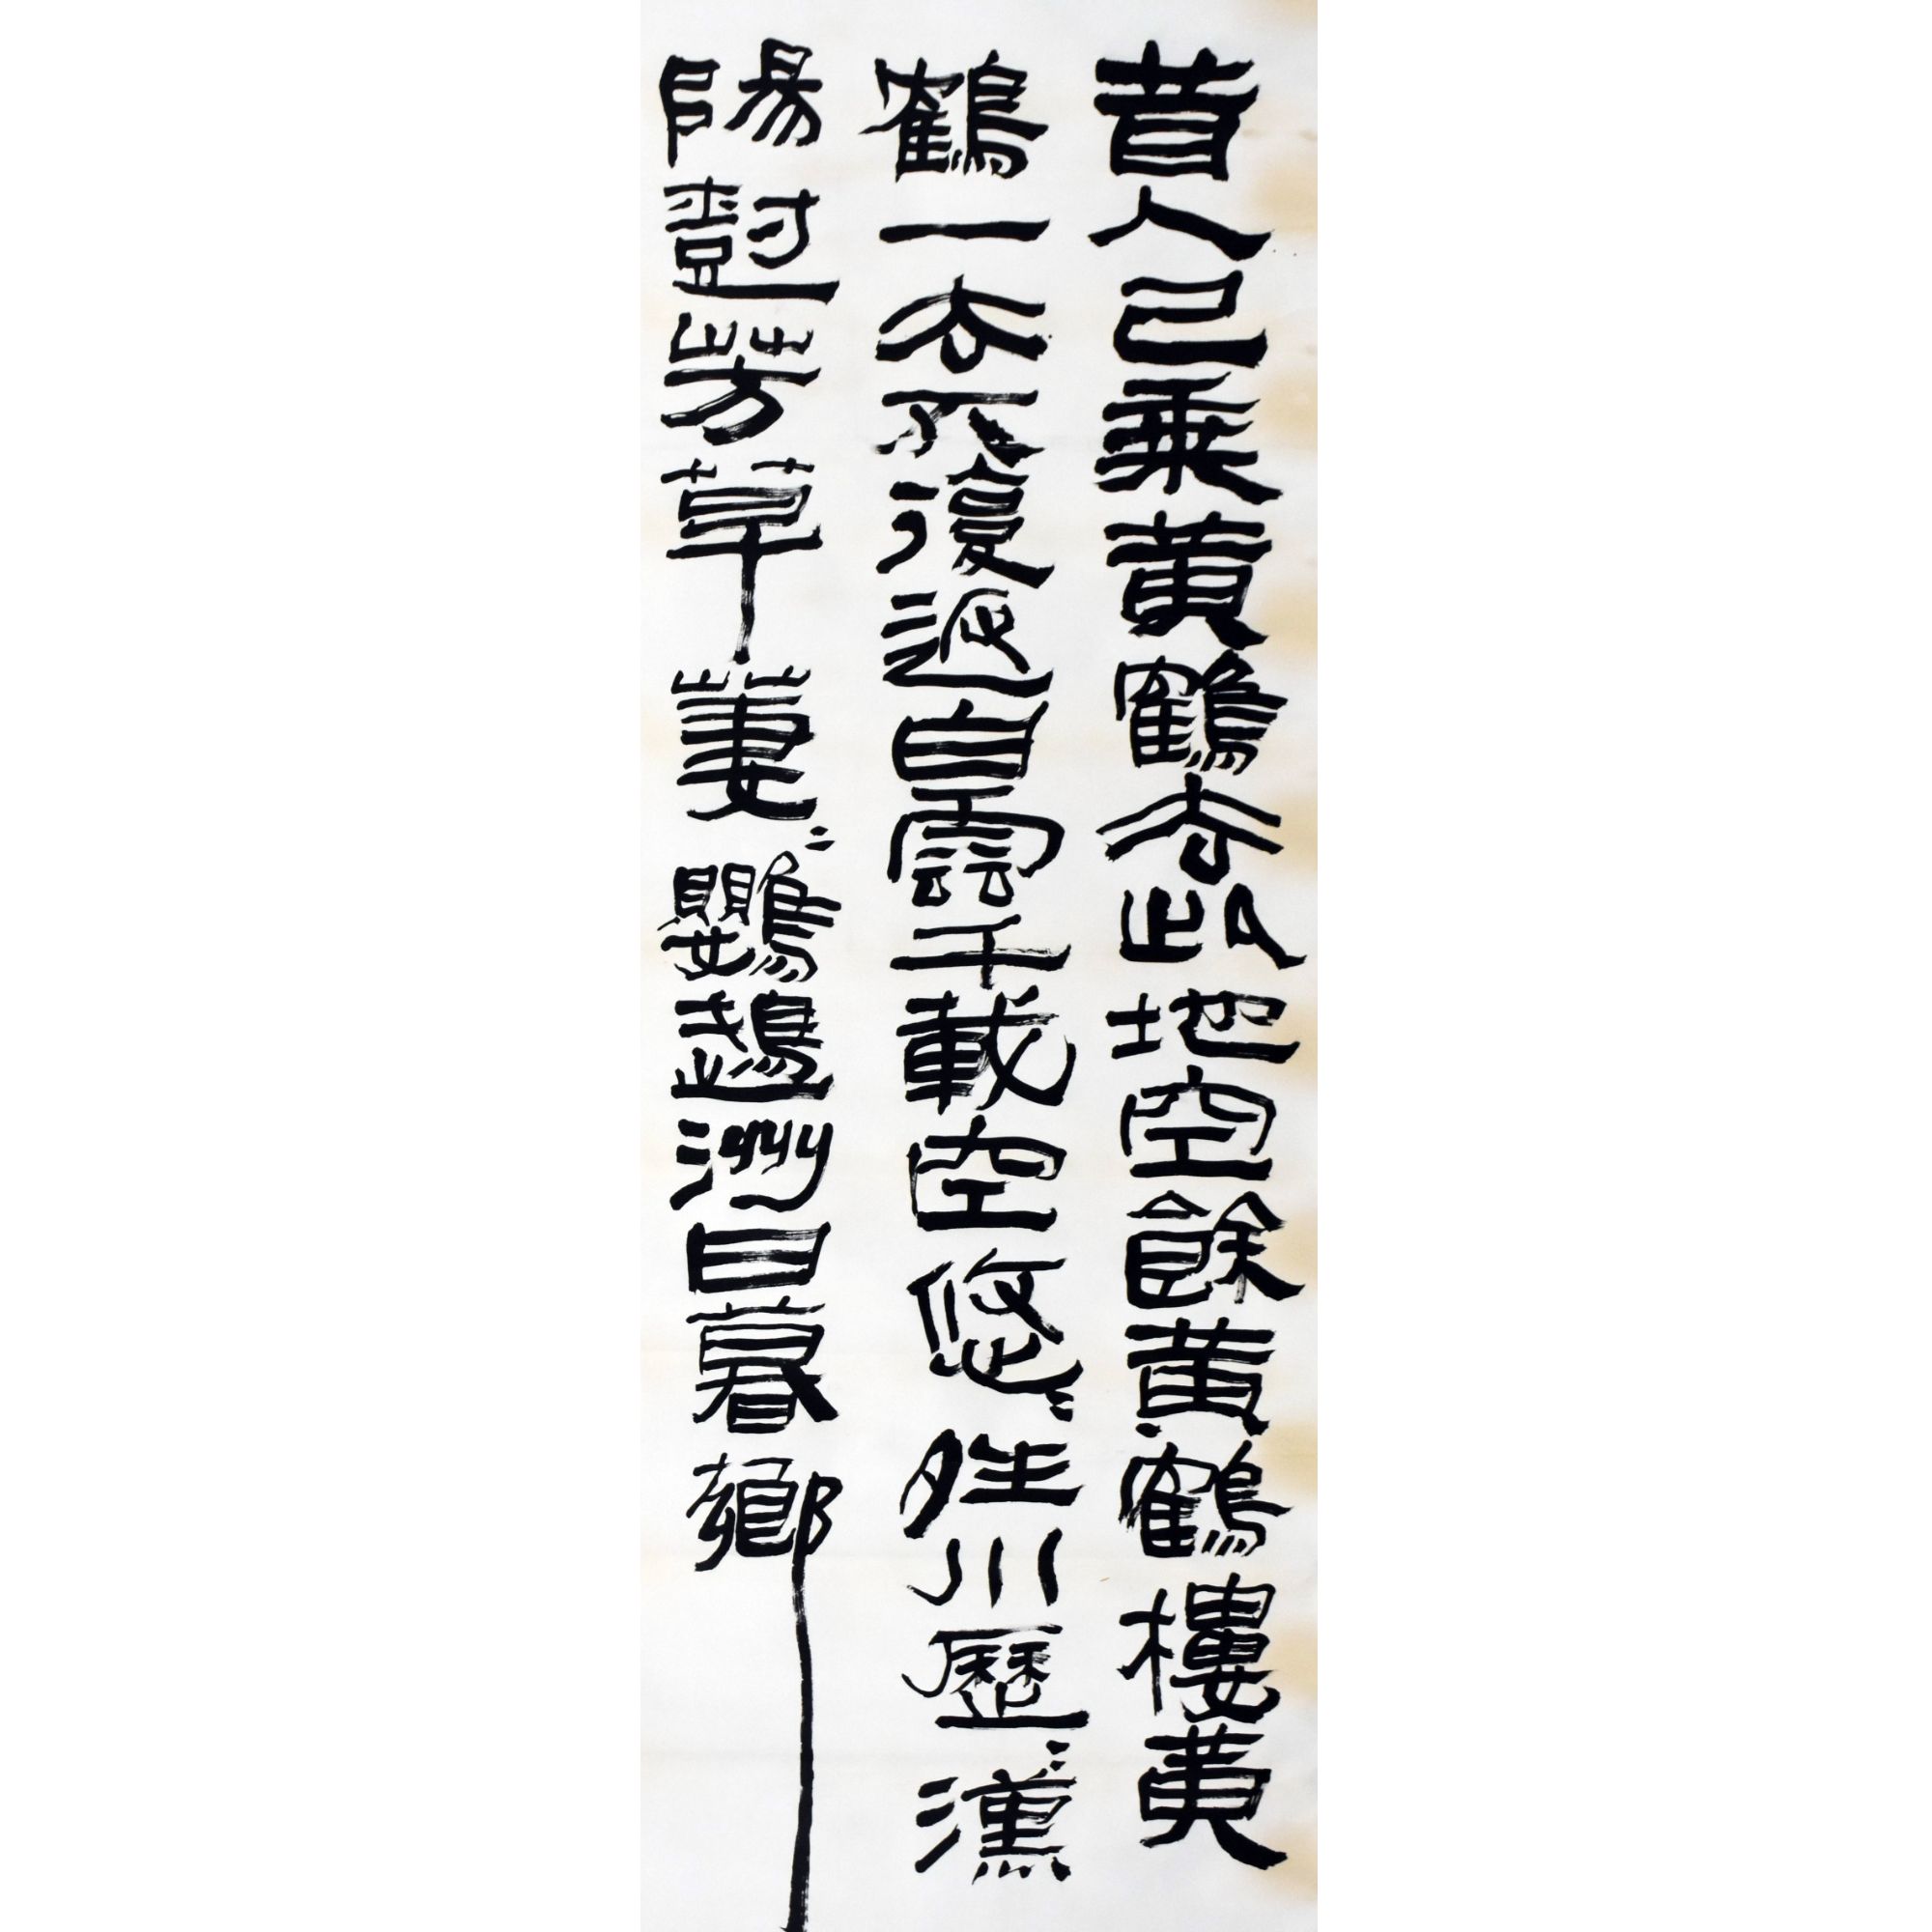 昔人已乘黄鶴去此地空餘黄鶴樓黄
鶴一去不復返白雲千載空悠〻夝川歷〻漢
陽樹芳草萋〻鸚鵡洲日暮鄉